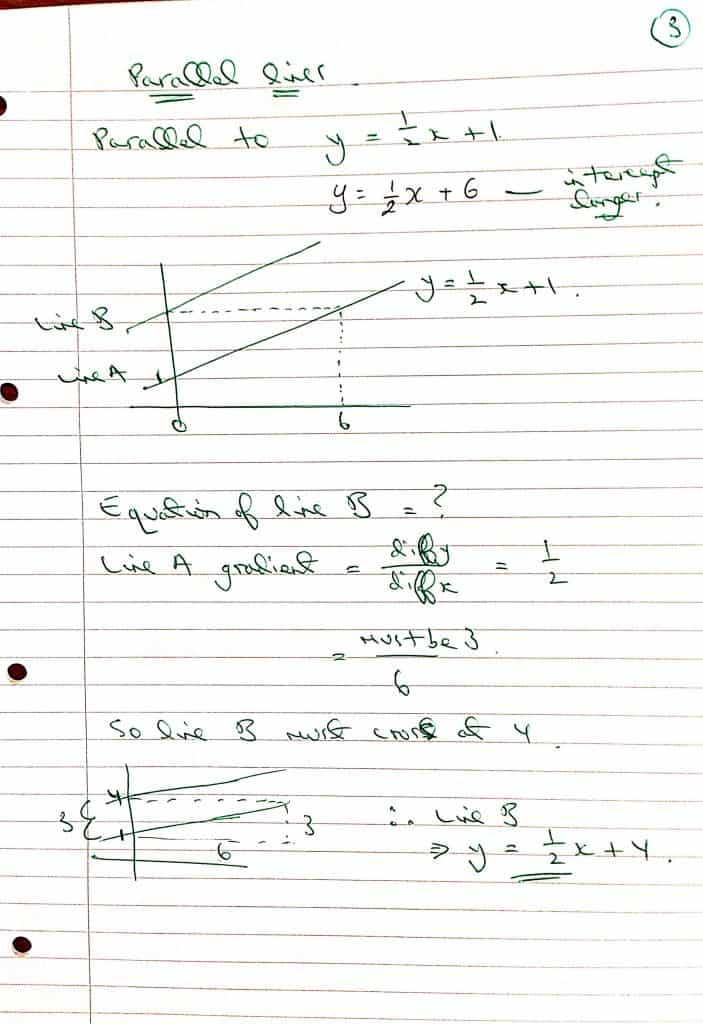 3
Parallel lines
Parallel to y = 1/2 x + 1
y = 1/2 x + 6 — intercept
larger.
y = 1/2 x + 1.
Line B
Line A 1
0 6
Equation of line B = ?
Line A gradient = diff y / diff x = 1/2
= must be 3 / 6
So line B must cross at 4.
4
3 { 1 6 3
∴ Line B
⇒ y = 1/2 x + 4.